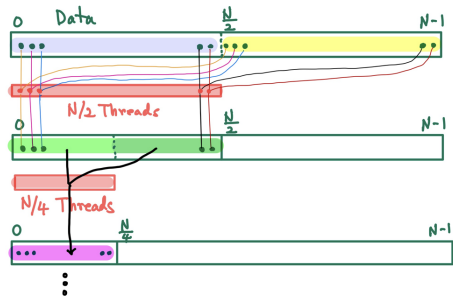 0 Data N/2 N-1
N/2 Threads
0 N/2 N-1
N/4 Threads
0 N/4 N-1